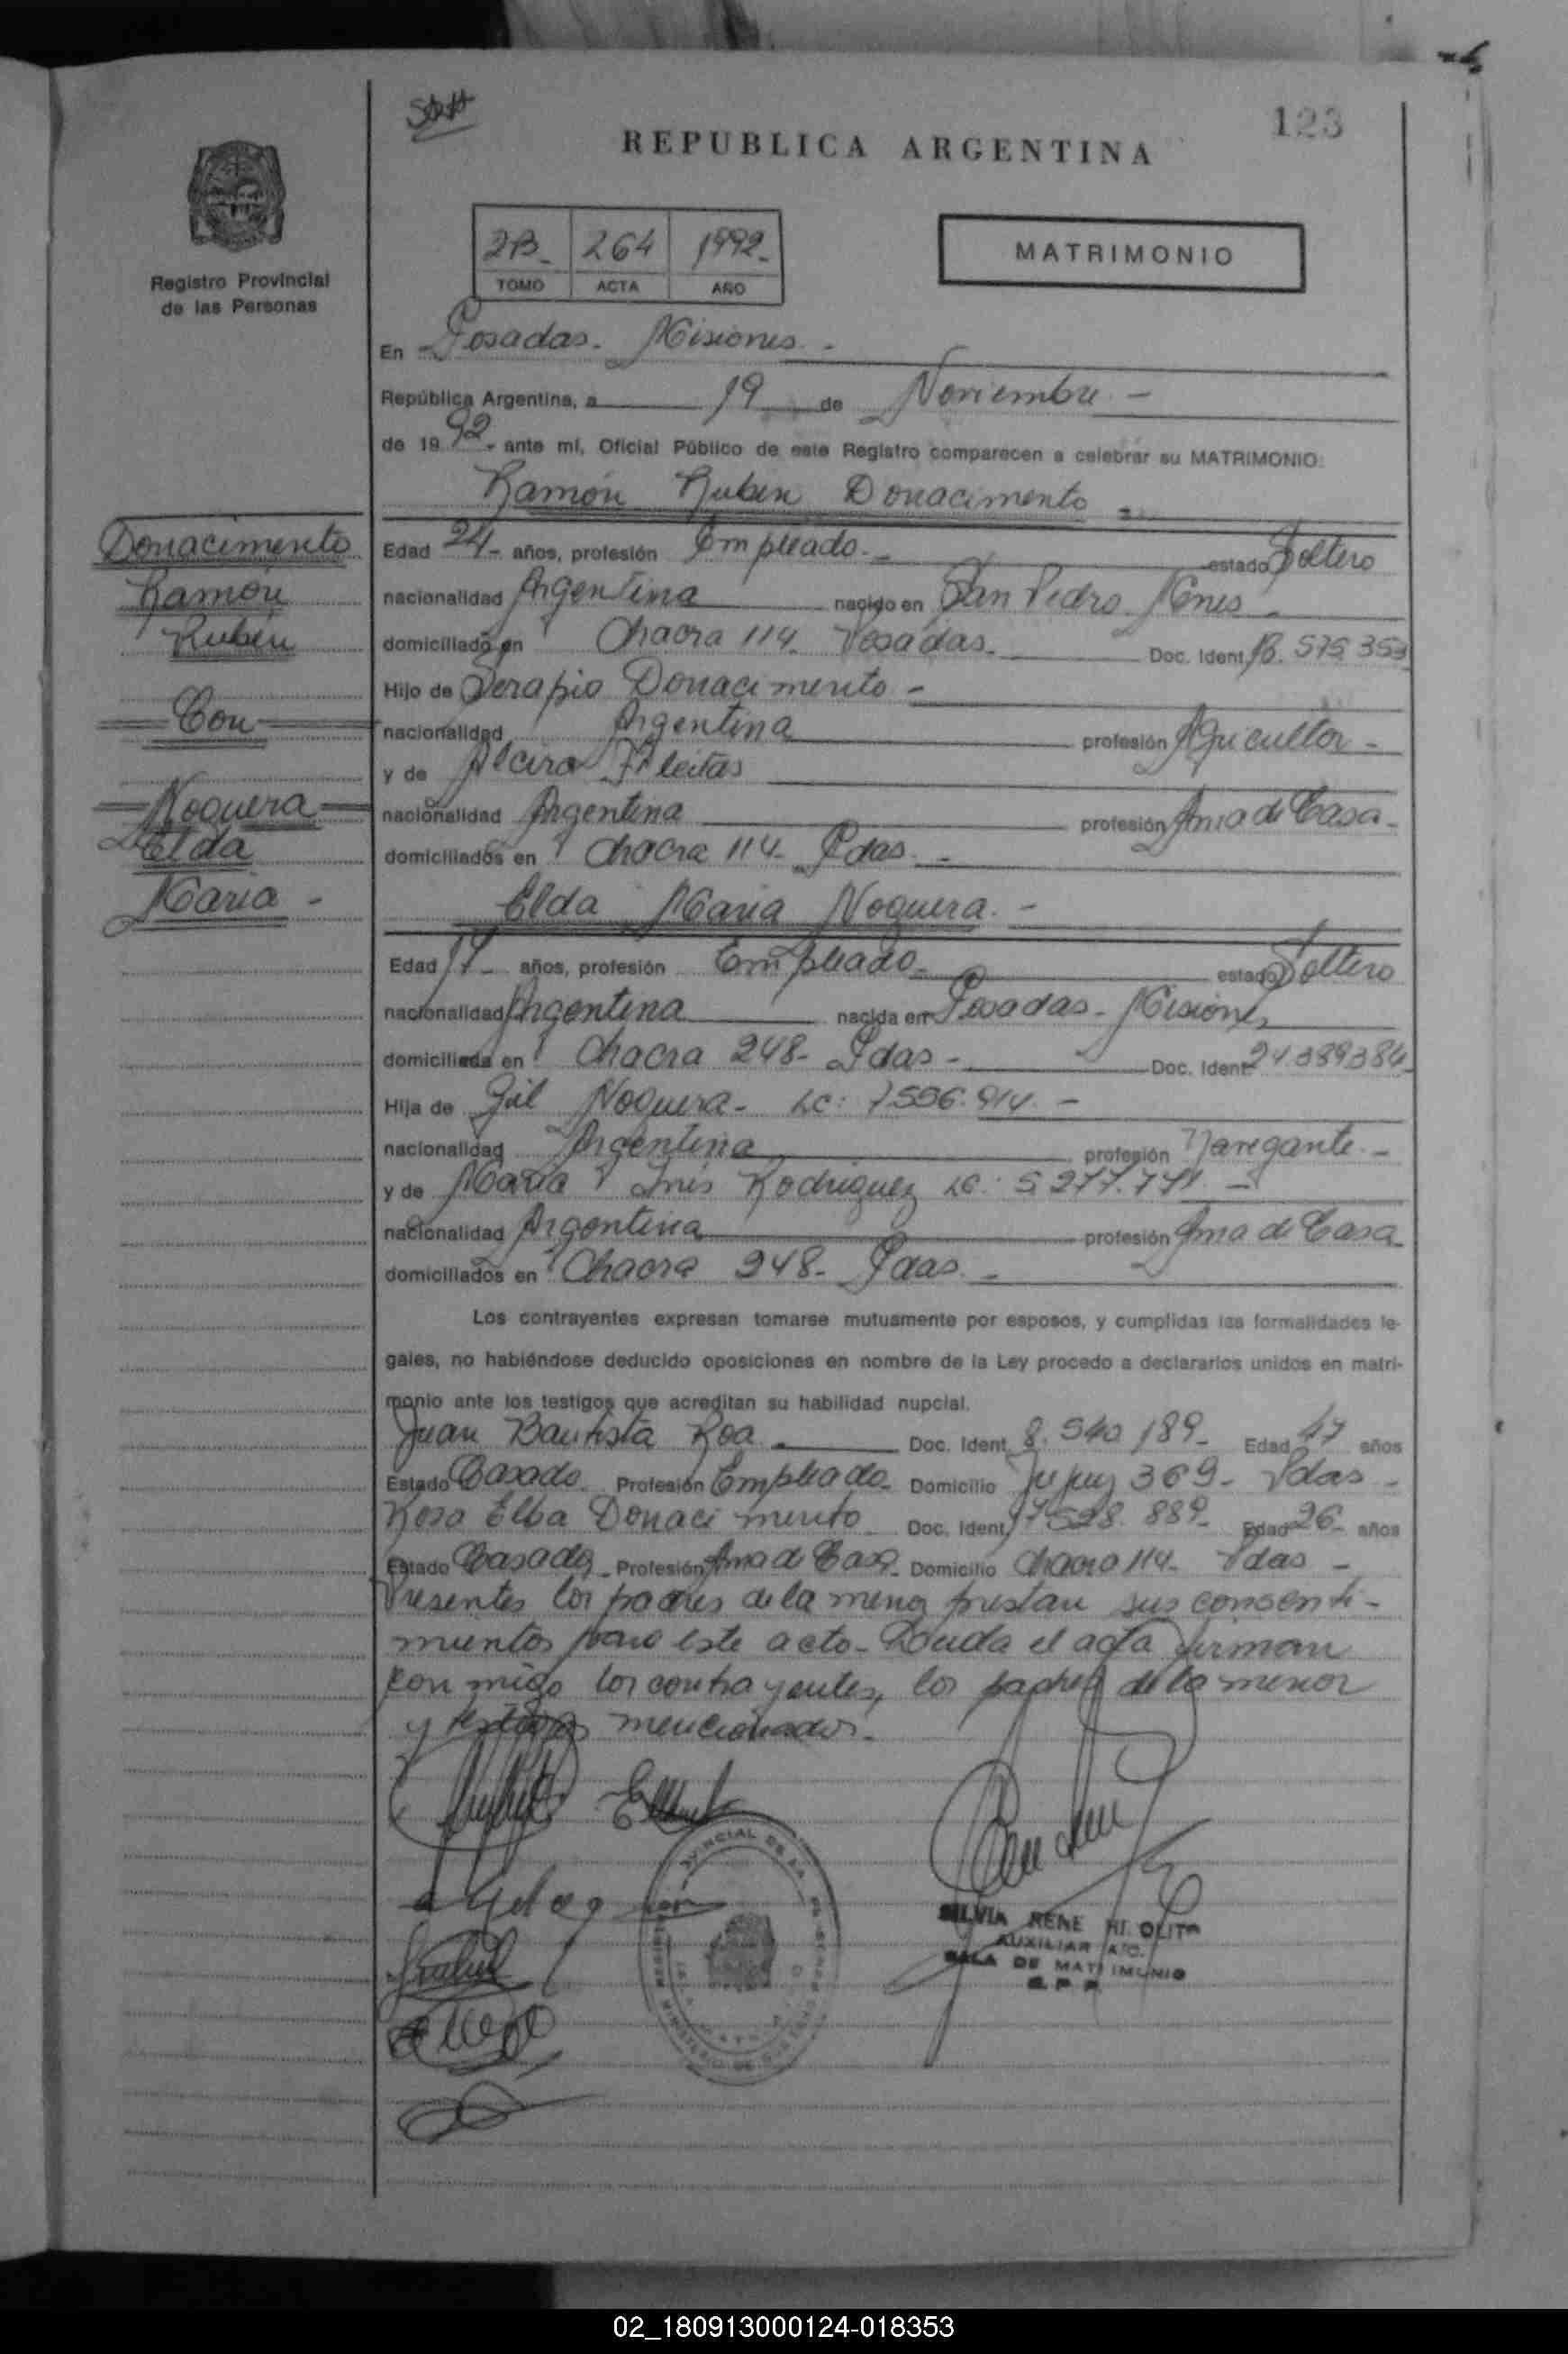 123
REPUBLICA ARGENTINA
2B - 264 1992 -
TOMO ACTA AÑO
MATRIMONIO
Registro Provincial
de las Personas
En Posadas - Misiones -
República Argentina, a 19 de Noviembre -
de 1992 - ante mí, Oficial Público de este Registro comparecen a celebrar su MATRIMONIO:
Ramón Rubén Donacimento -
Donacimento
Ramón
Rubén
Con
Noguera
Elda
Maria -
Edad 24 - años, profesión Empleado - estado Soltero
nacionalidad Argentina nacido en San Pedro Mnes -
domiciliado en Chacra 114 - Posadas - Doc. Ident. 575 353
Hijo de Serapio Donacimento -
nacionalidad Argentina profesión Agricultor -
y de Alcira Fleitas
nacionalidad Argentina profesión Ama de Casa -
domiciliados en Chacra 114 - Pdas -
Elda Maria Noguera - -
Edad 17 - años, profesión Empleado - estado Soltero
nacionalidad Argentina nacida en Posadas - Misiones
domiciliada en Chacra 248 - Pdas - Doc. Ident. 24.389384
Hija de Gil Noguera - LC: 7.556.914 - -
nacionalidad Argentina profesión Navegante - -
y de Maria Inés Rodriguez LC: 5.277.771 - -
nacionalidad Argentina profesión Ama de Casa -
domiciliados en Chacra 248 - Pdas - -
Los contrayentes expresan tomarse mutuamente por esposos, y cumplidas las formalidades le-
gales, no habiéndose deducido oposiciones en nombre de la Ley procedo a declararlos unidos en matri-
monio ante los testigos que acreditan su habilidad nupcial.
Juan Bautista Roa - Doc. Ident. 8.540 189 - Edad 47 años
Estado Casado - Profesión Empleado - Domicilio Jujuy 369 - Pdas -
Rosa Elba Donacimento Doc. Ident. 17 528.889 - Edad 26 - años
Estado Casada - Profesión Ama de Casa - Domicilio Chacra 114 - Pdas -
Presentes los padres de la menor prestan sus consenti-
mientos para este acto - Leida el acta firman
con migo los contrayentes, los padres de la menor
y testigos mencionados -
SILVIA RENE
AUXILIAR A/C.
SALA DE MATRIMONIO
R. P. P.
02_180913000124-018353